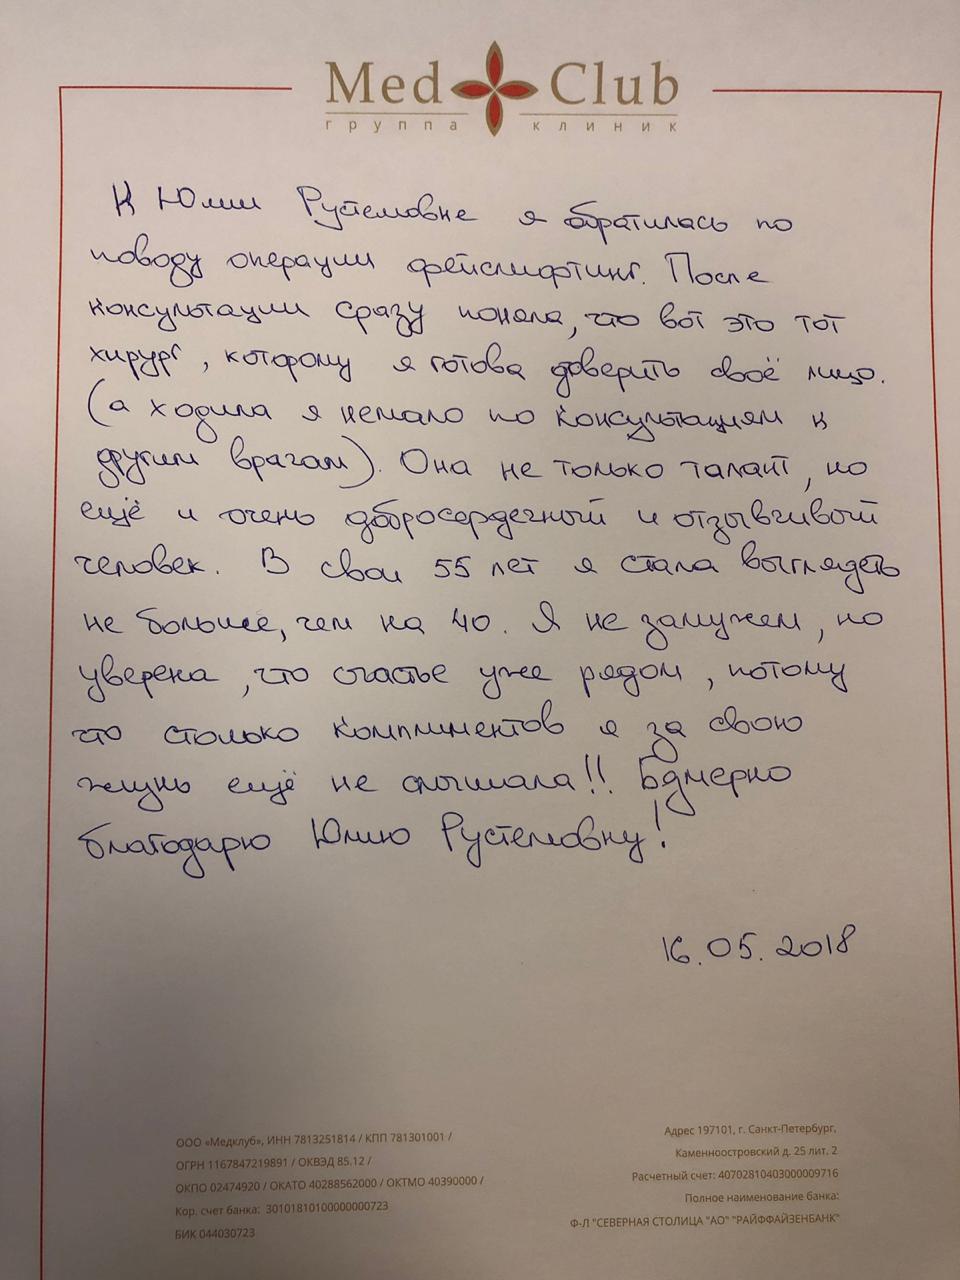 Med Club
группа клиник
К Юлии Рустемовне я обратилась по
поводу операции фейслифтинг. После
консультации сразу поняла, что вот это тот
хирург, которому я готова доверить своё лицо.
(а ходила я немало по консультациям к
другим врачам). Она не только талант, но
ещё и очень добросердечный и отзывчивый
человек. В свои 55 лет я стала выглядеть
не больше, чем на 40. Я не замужем, но
уверена, что счастье уже рядом, потому
что столько комплиментов я за свою
жизнь ещё не слышала!! Безмерно
благодарю Юлию Рустемовну!
16.05.2018
ООО «Медклуб», ИНН 7813251814 / КПП 781301001 /
ОГРН 1167847219891 / ОКВЭД 85.12 /
ОКПО 02474920 / ОКАТО 40288562000 / ОКТМО 40390000 /
Кор. счет банка: 30101810100000000723
БИК 044030723
Адрес 197101, г. Санкт-Петербург,
Каменноостровский д. 25 лит. 2
Расчетный счет: 40702810403000009716
Полное наименование банка:
Ф-Л "СЕВЕРНАЯ СТОЛИЦА "АО" "РАЙФФАЙЗЕНБАНК"